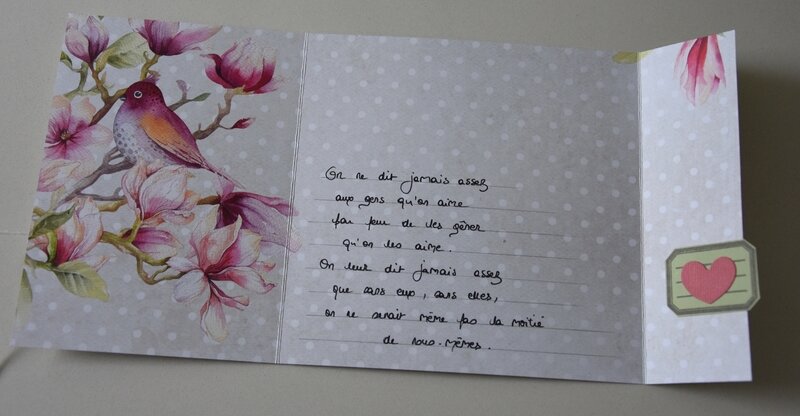 On ne dit jamais assez
aux gens qu'on aime
par peur de les gêner
qu'on les aime.
On leur dit jamais assez
que sans eux, sans elles,
on ne serait même pas la moitié
de nous-mêmes.